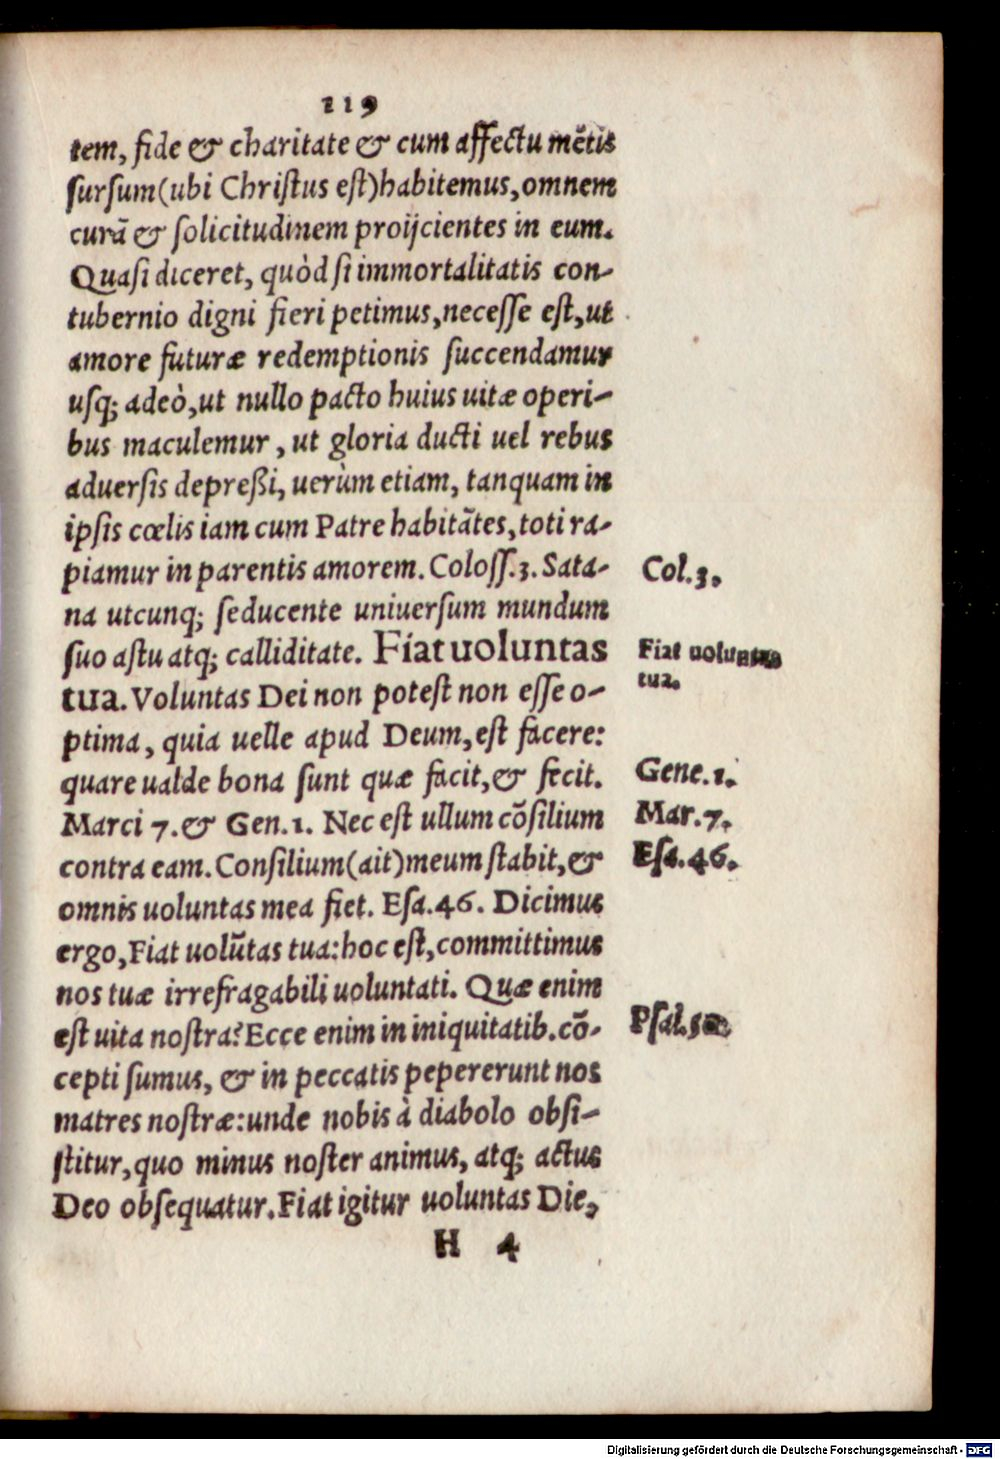 119
tem, fide & charitate & cum affectu mẽtis
ſurſum (ubi Chriſtus eſt) habitemus, omnem
curã & ſolicitudinem proijcientes in eum.
Quaſi diceret, quòd ſi immortalitatis con-
tubernio digni fieri petimus, neceſſe eſt, ut
amore futuræ redemptionis ſuccendamur
uſq; adeò, ut nullo pacto huius uitæ operi-
bus maculemur, ut gloria ducti uel rebus
aduerſis depreßi, uerùm etiam, tanquam in
ipſis cœlis iam cum Patre habitãtes, toti ra-
piamur in parentis amorem. Coloſſ. 3. Sata-
Col. 3.
na utcunq; ſeducente uniuerſum mundum
ſuo aſtu atq; calliditate. Fiat uoluntas
Fiat uoluntas
tua. Voluntas Dei non poteſt non eſſe o-
tua.
ptima, quia uelle apud Deum, eſt facere:
quare ualde bona ſunt quæ facit, & fecit.
Gene. 1.
Marci 7. & Gen. 1. Nec eſt ullum cõſilium
Mar. 7.
contra eam. Conſilium (ait) meum ſtabit, &
Eſa. 46.
omnis uoluntas mea fiet. Eſa. 46. Dicimus
ergo, Fiat uolũtas tua: hoc eſt, committimus
nos tuæ irrefragabili uoluntati. Quæ enim
eſt uita noſtra? Ecce enim in iniquitatib. cõ-
Pſal.
cepti ſumus, & in peccatis pepererunt nos
matres noſtræ: unde nobis à diabolo obſi-
ſtitur, quo minus noſter animus, atq; actus
Deo obſequatur. Fiat igitur uoluntas Die,
H 4
Digitalisierung gefördert durch die Deutsche Forschungsgemeinschaft - DFG